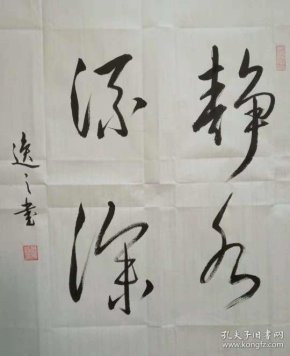 静水
流深
逸之书
孔夫子旧书网